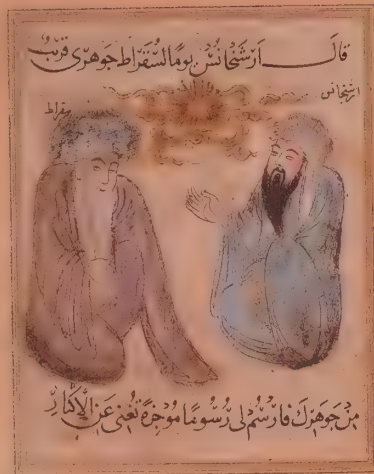 قال ارشجانس يوما لسقراط جوهري قريب
ارشجانس
سقراط
من جوهرك فارسم لي رسوما موجزة تغني عن الإكثار